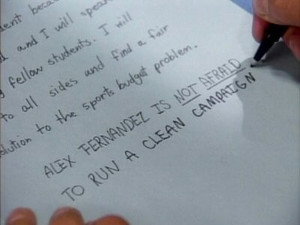 dent beca
l and I will spea
g fellow students. I will
to all sides and find a fair
olution to the sports budget problem.
ALEX FERNANDEZ IS NOT AFRAID
TO RUN A CLEAN CAMPAIGN